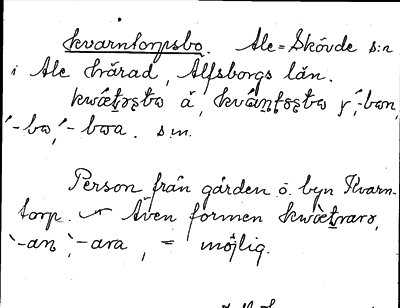 kvarntorpsbo. Ale-Skövde s:n
i Ale härad, Älfsborgs län.
å, -bon,
-bo, -boa. s.m.
Person från gården o. byn Kvarn-
torp. Även formen
-an, -ara, = möjlig.